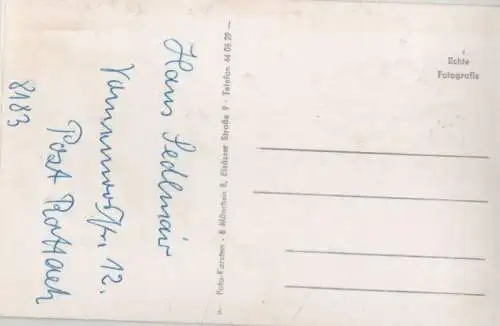 Hans Sedlmair
Tannenmoosstr. 12.
Post Rottach
8183
Foto-Karsten · 8 München 8, Elsässer Straße 9 · Telefon 44 05 29
Echte
Fotografie